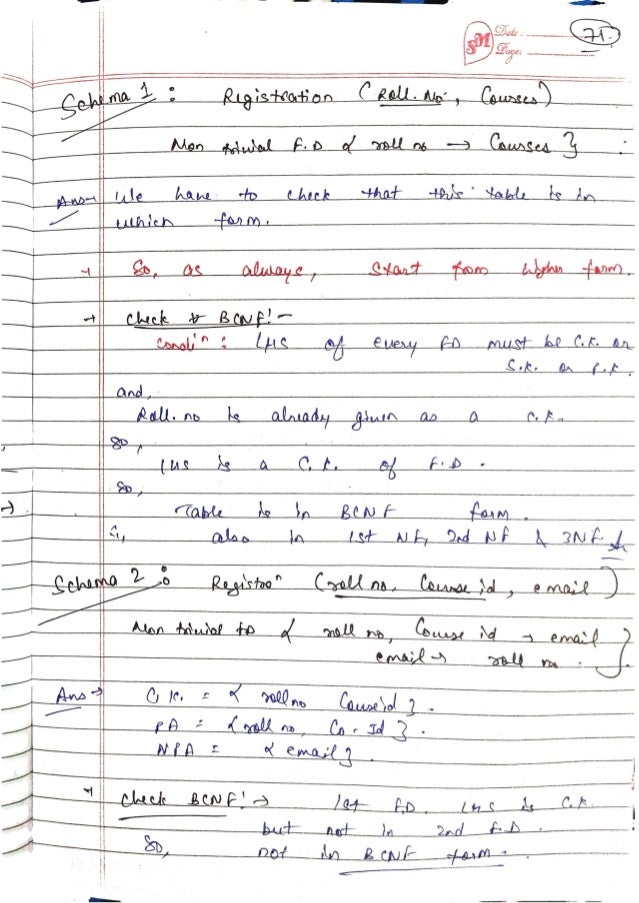 SM Date:
Page:
71.
Schema 1 : Registration (Roll. No, Courses)
Non trivial F.D { roll no → Courses }
Ans → We have to check that this table is in
which form.
→ So, as always, start from higher form.
→ Check BCNF! -
Condiⁿ : LHS of every FD must be C.K. or
S.K. or P.K.
and,
Roll. no is already given as a C.K.
so,
LHS is a C.K. of F.D.
So,
→ Table is in BCNF form.
∴, also in 1st NF, 2nd NF & 3NF
Schema 2 : Registraⁿ (roll no, Course id, email)
Non trivial FD { roll no, Course id → email
email → roll no. }
Ans → C.K. = { roll no Course id }.
PA = { roll no, Co. Id }.
NPA = { email }.
→ Check BCNF! → 1st F.D. LHS is C.K.
but not in 2nd F.D.
So, not in BCNF form.